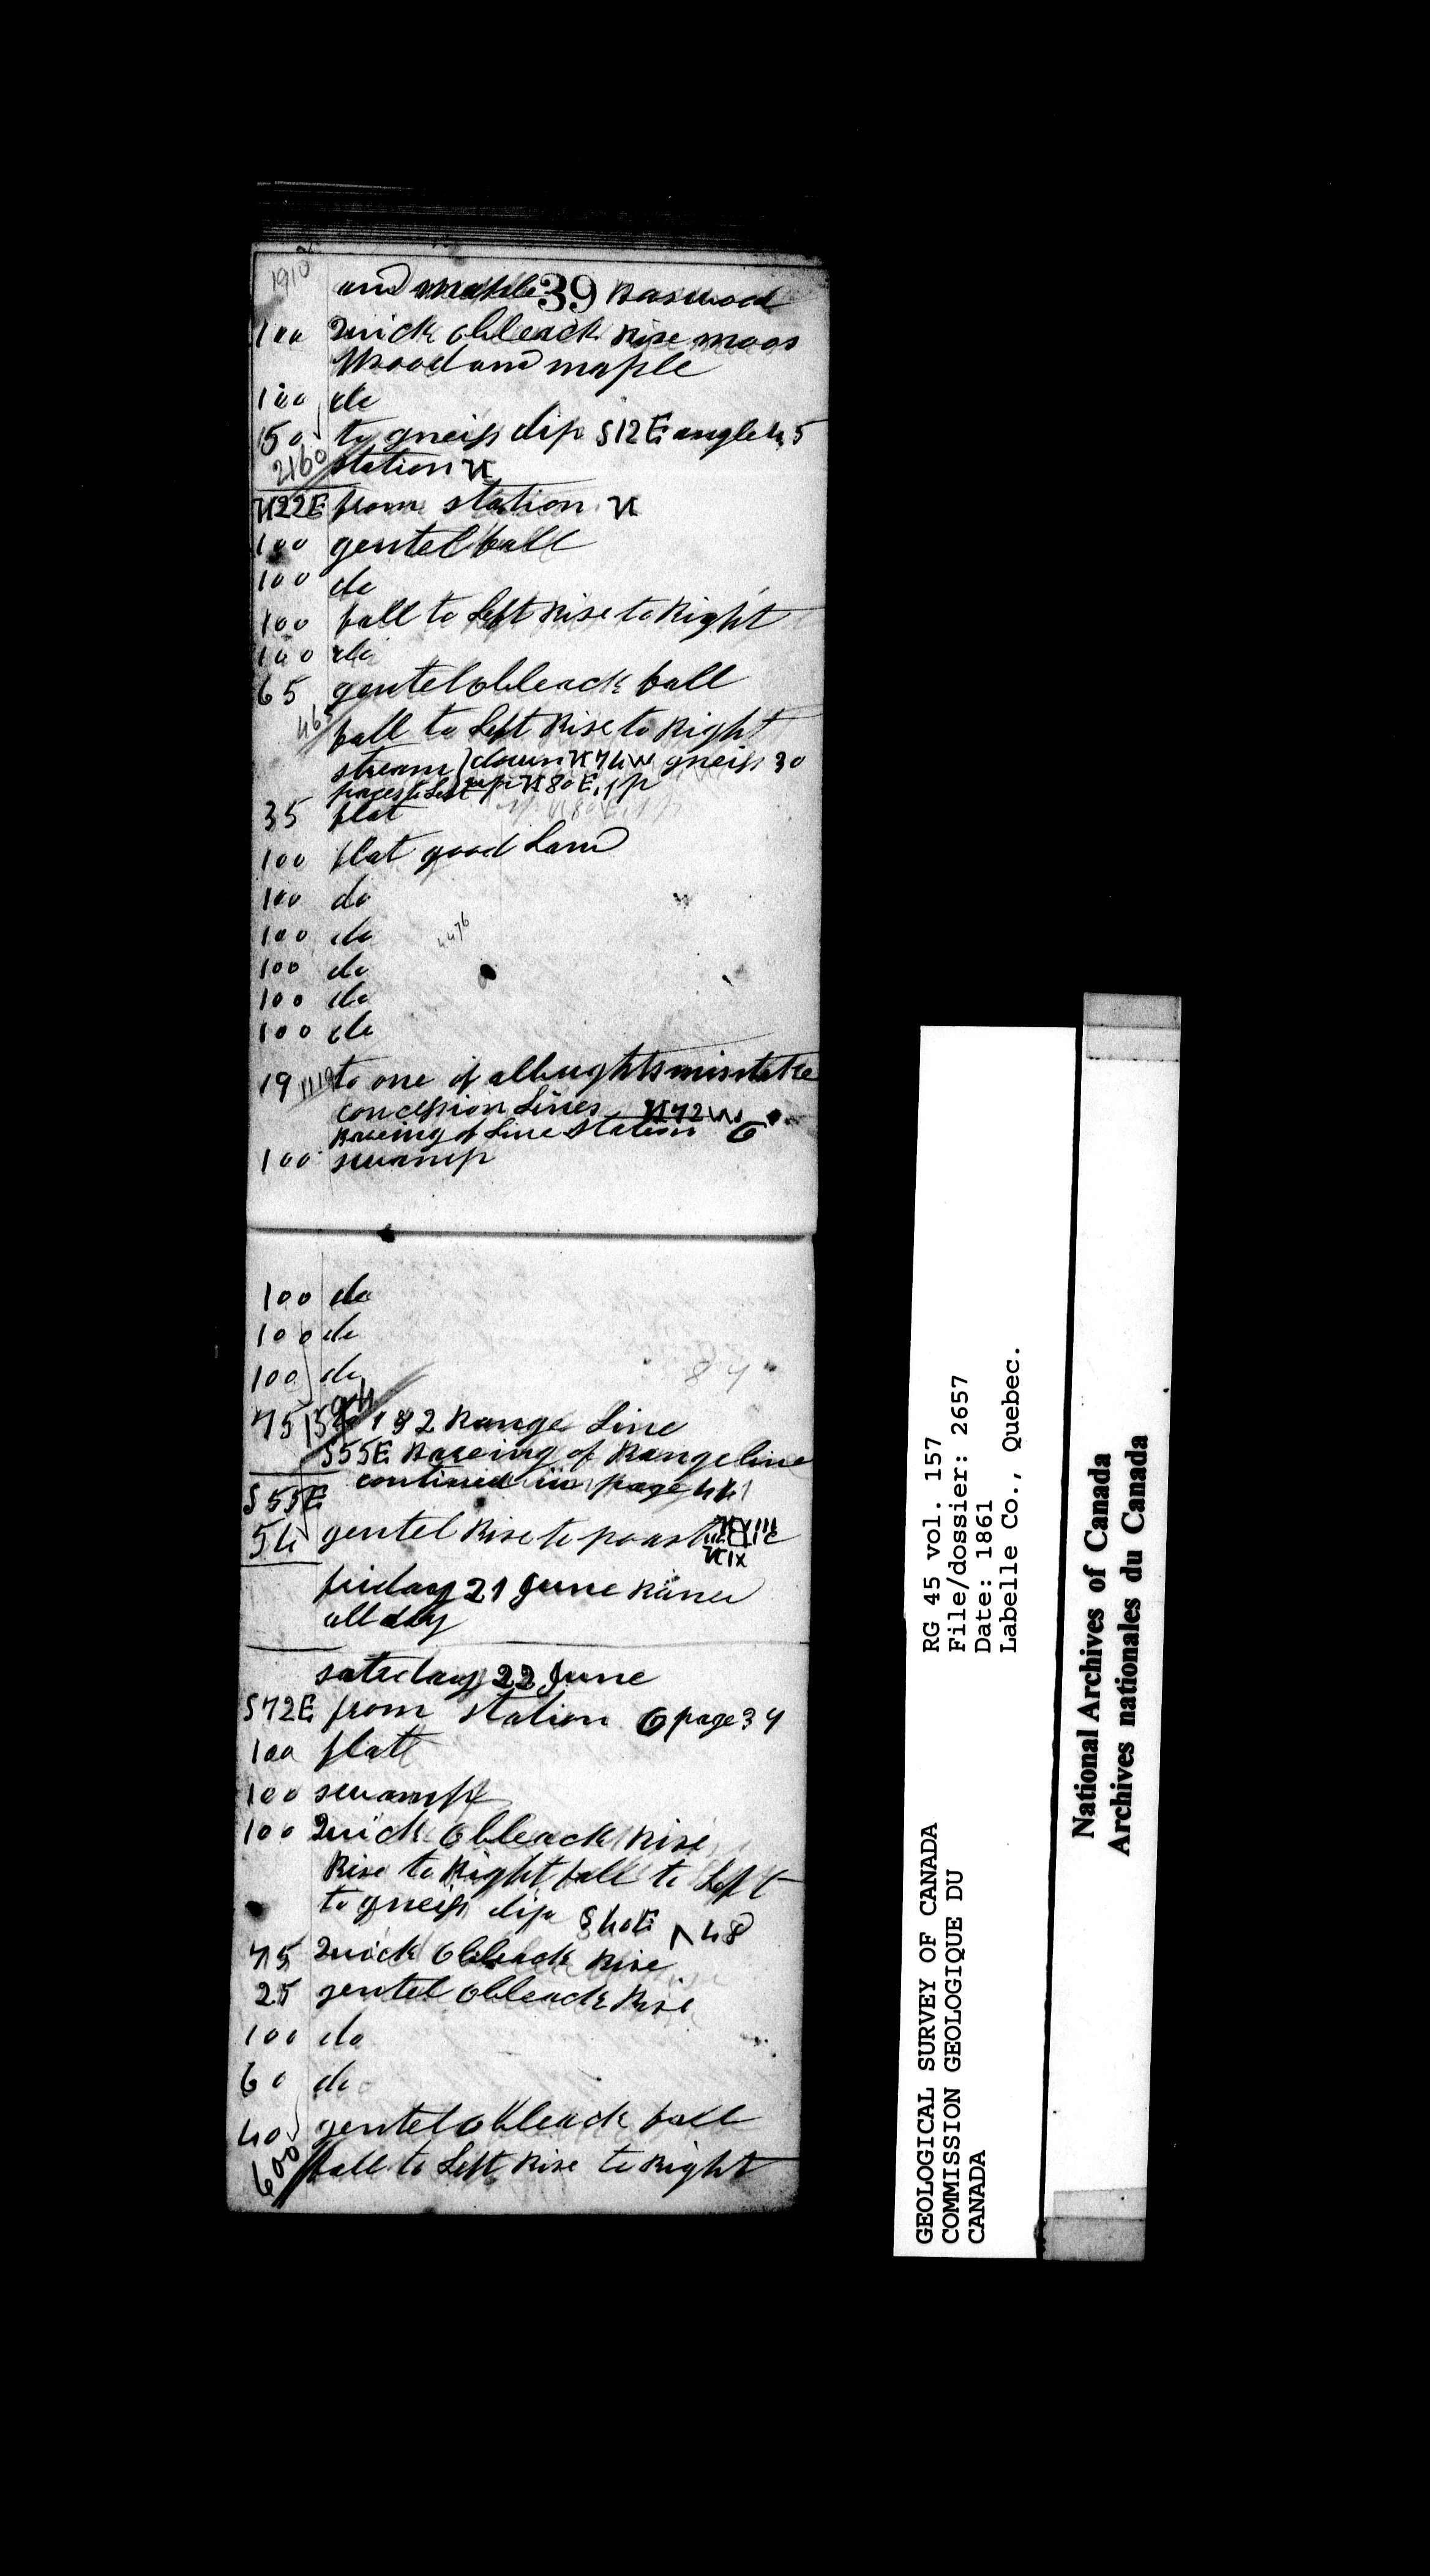 1910
and maple 39 Baswood
100 Quick obleack Rise moos
Wood and maple
100 do
50 to gneiss dip S12E angle 45
2160 station N
N22E from station N
100 gentel fall
100 do
100 fall to Left Rise to Right
100 do
65 gentel obleack fall
465 fall to Left Rise to Right
stream } down N74W gneiss 30
paces to Left up N80E. 1 p
35 flat
100 flat good Land
100 do
100 do 4476
100 do
100 do
100 do
19 1119 to one of allbrights mistake
concession Lines N72W
Bareing of Line Station 6
100 swamp
100 do
100 do
100 do
75 to 1 & 2 Range Line
S55E Bareing of Range line
continued in page 41
S55E
54 gentel Rise to poast
NIX
friday 21 June Raned
all day
satuday 22 June
S72E from station 6 page 39
100 flatt
100 swamp
100 Quick obleack Rise
Rise to Right fall to Left
to gneiss dip S40E ^48
75 Quick obleack Rise
25 gentel obleack Rise
100 do
60 do
40 gentel obleack fall
600 fall to Left Rise to Right
GEOLOGICAL SURVEY OF CANADA
COMMISSION GEOLOGIQUE DU
CANADA
RG 45 vol. 157
File/dossier: 2657
Date: 1861
Labelle Co., Quebec.
National Archives of Canada
Archives nationales du Canada